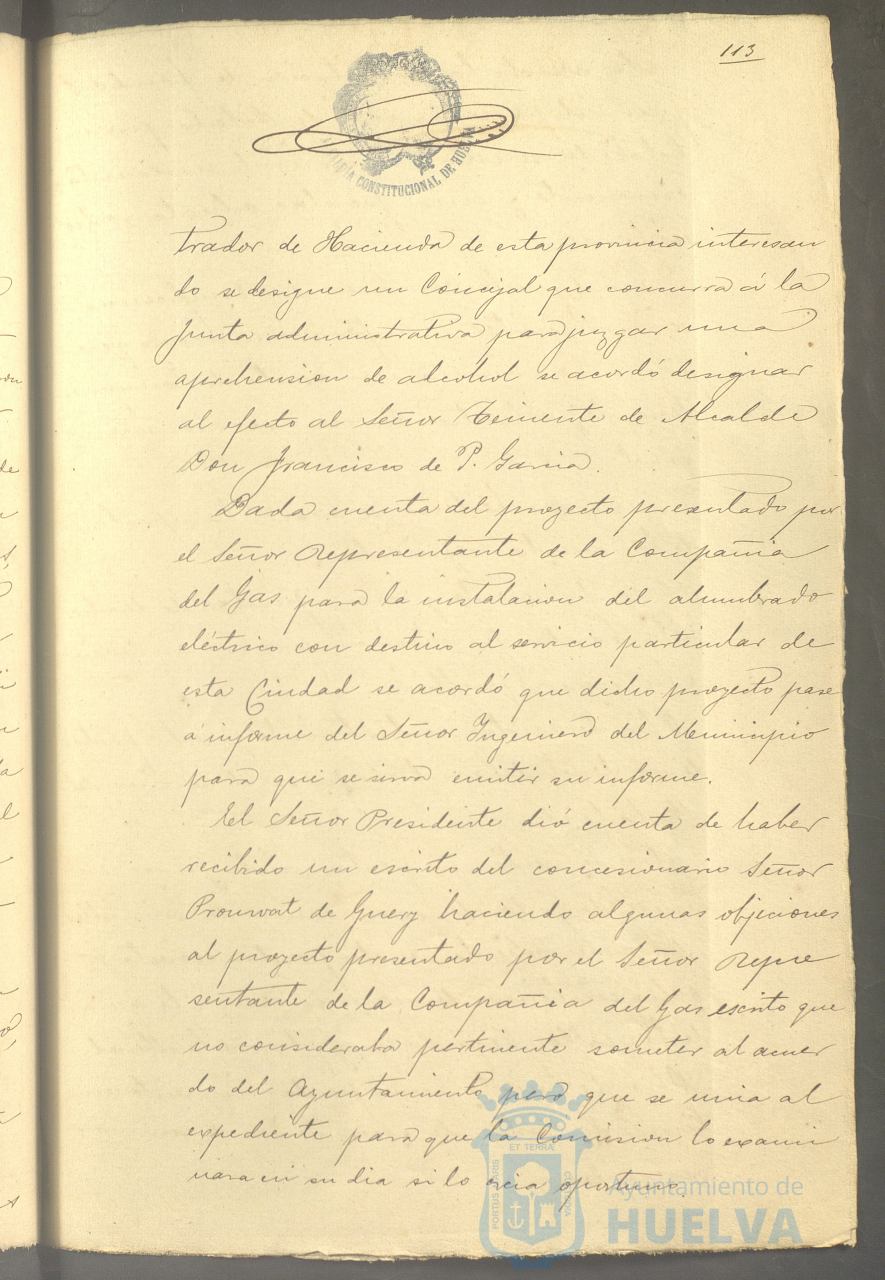 113
CONSTITUCIONAL DE HUELVA
trador de Hacienda de esta provincia interesan
do se designe un Concejal que concurra á la
Junta administrativa para juzgar una
aprehension de alcohol se acordó designar
al efecto al Señor Teniente de Alcalde
Don Francisco de P. Garcia.
Dada cuenta del proyecto presentado por
el Señor Representante de la Compañia
del Gas para la instalacion del alumbrado
eléctrico con destino al servicio particular de
esta Ciudad se acordó que dicho proyecto pase
á informe del Señor Ingeniero del Municipio
para que se sirva emitir su informe.
El Señor Presidente dió cuenta de haber
recibido un escrito del concesionario Señor
de haciendo algunas objeciones
al proyecto presentado por el Señor Repre
sentante de la Compañia del Gas escrito que
no consideraba pertinente someter al acuer
do del Ayuntamiento pero que se unia al
expediente para que la Comision lo exami
nara en su dia si lo creia oportuno.
PORTUS MARIS
ET TERRÆ
CUSTODIA
Ayuntamiento de
HUELVA